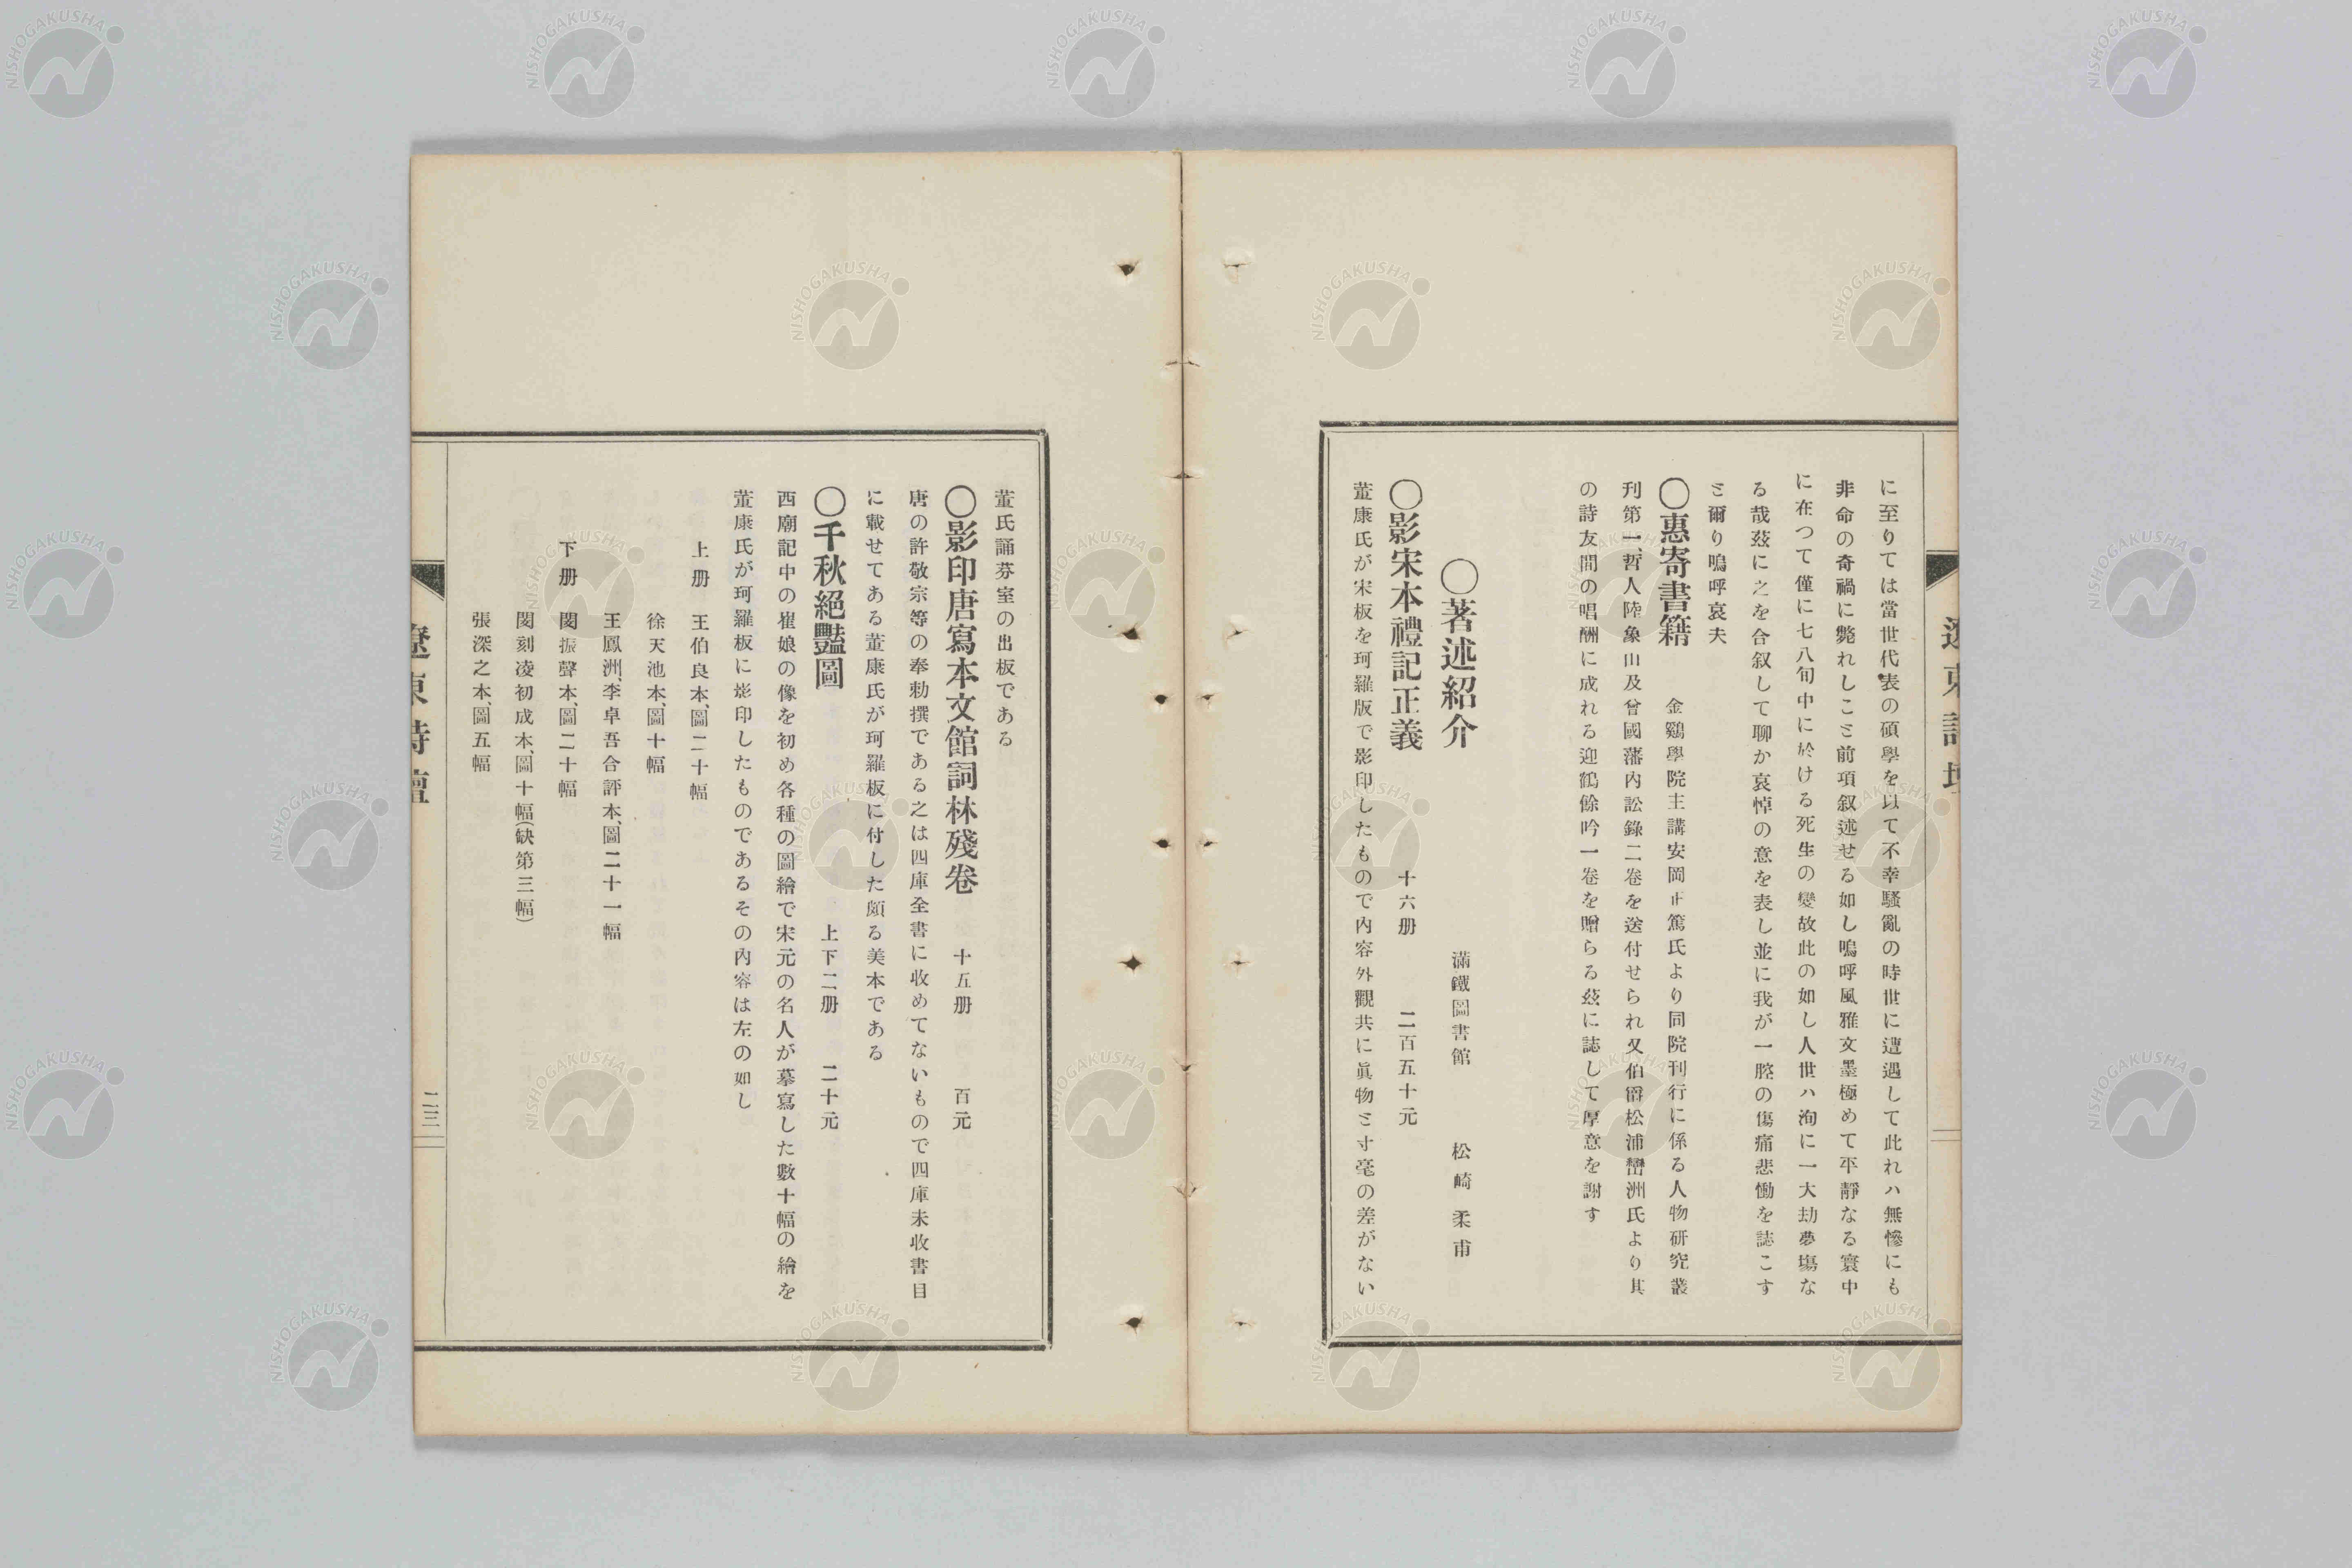 に至りては當世代表の碩學を以て不幸騷亂の時世に遭遇して此れハ無慘にも
非命の奇禍に斃れしこミ前項叙述せる如し嗚呼風雅文墨極めて平靜なる寰中
に在つて僅に七八旬中に於ける死生の變故此の如し人世ハ洵に一大劫夢塲な
る哉茲に之を合叙して聊か哀悼の意を表し並に我が一腔の傷痛悲慟を誌こす
ミ爾り嗚呼哀夫
〇惠寄書籍 金鷄學院主講安岡正篤氏より同院刊行に係る人物研究叢
刊第一、哲人陸象山及曾國藩內訟錄二卷を送付せられ又伯爵松浦鸞洲氏より其
の詩友間の唱酬に成れる迎鶴餘吟一卷を贈らる茲に誌して厚意を謝す
〇著述紹介 滿鐵圖書館 松崎柔甫
〇影宋本禮記正義 十六册 二百五十元
董康氏が宋板を珂羅版で影印したもので內容外觀共に眞物ミ寸毫の差がない
董氏誦芬室の出板である
〇影印唐寫本文館詞林殘卷 十五册 百元
唐の許敬宗等の奉勅撰である之は四庫全書に收めてないもので四庫未收書目
に載せてある董康氏が珂羅板に付した頗る美本である
〇千秋絕豔圖 上下二册 二十元
西廂記中の崔娘の像を初め各種の圖繪で宋元の名人が摹寫した數十幅の繪を
董康氏が珂羅板に影印したものであるその內容は左の如し
上册 王伯良本、圖二十幅
徐天池本、圖十幅
王鳳洲、李卓吾合評本、圖二十一幅
下册 閔振聲本、圖二十幅
閔刻凌初成本、圖十幅(缺第三幅)
張深之本、圖五幅
遼東詩壇
二三
NISHOGAKUSHA